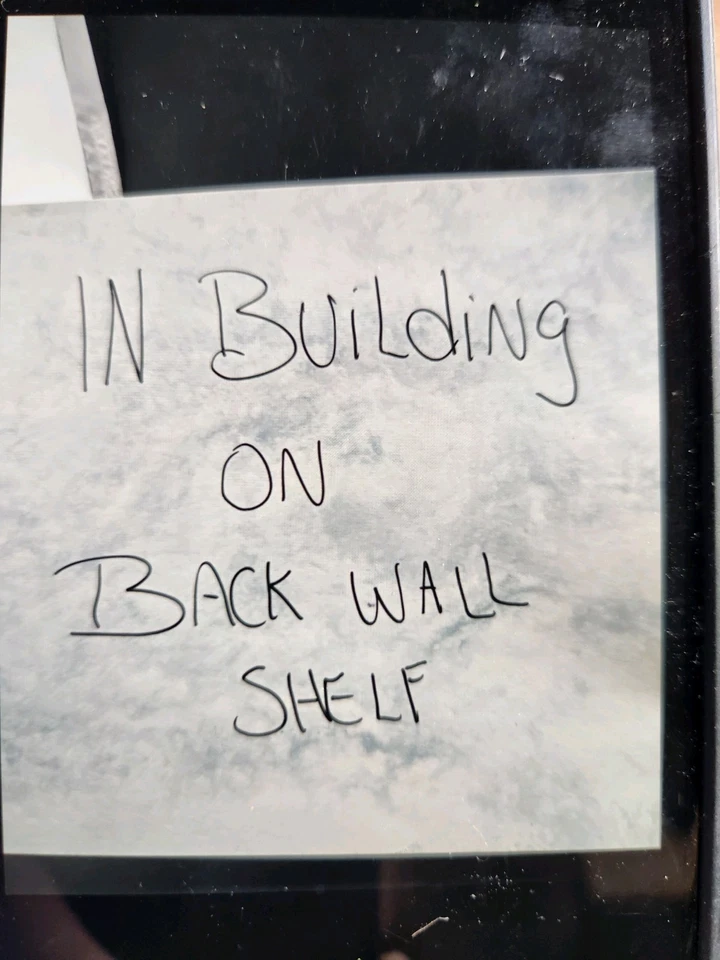 IN BuiLdiNg
ON
BACK WALL
SHELF